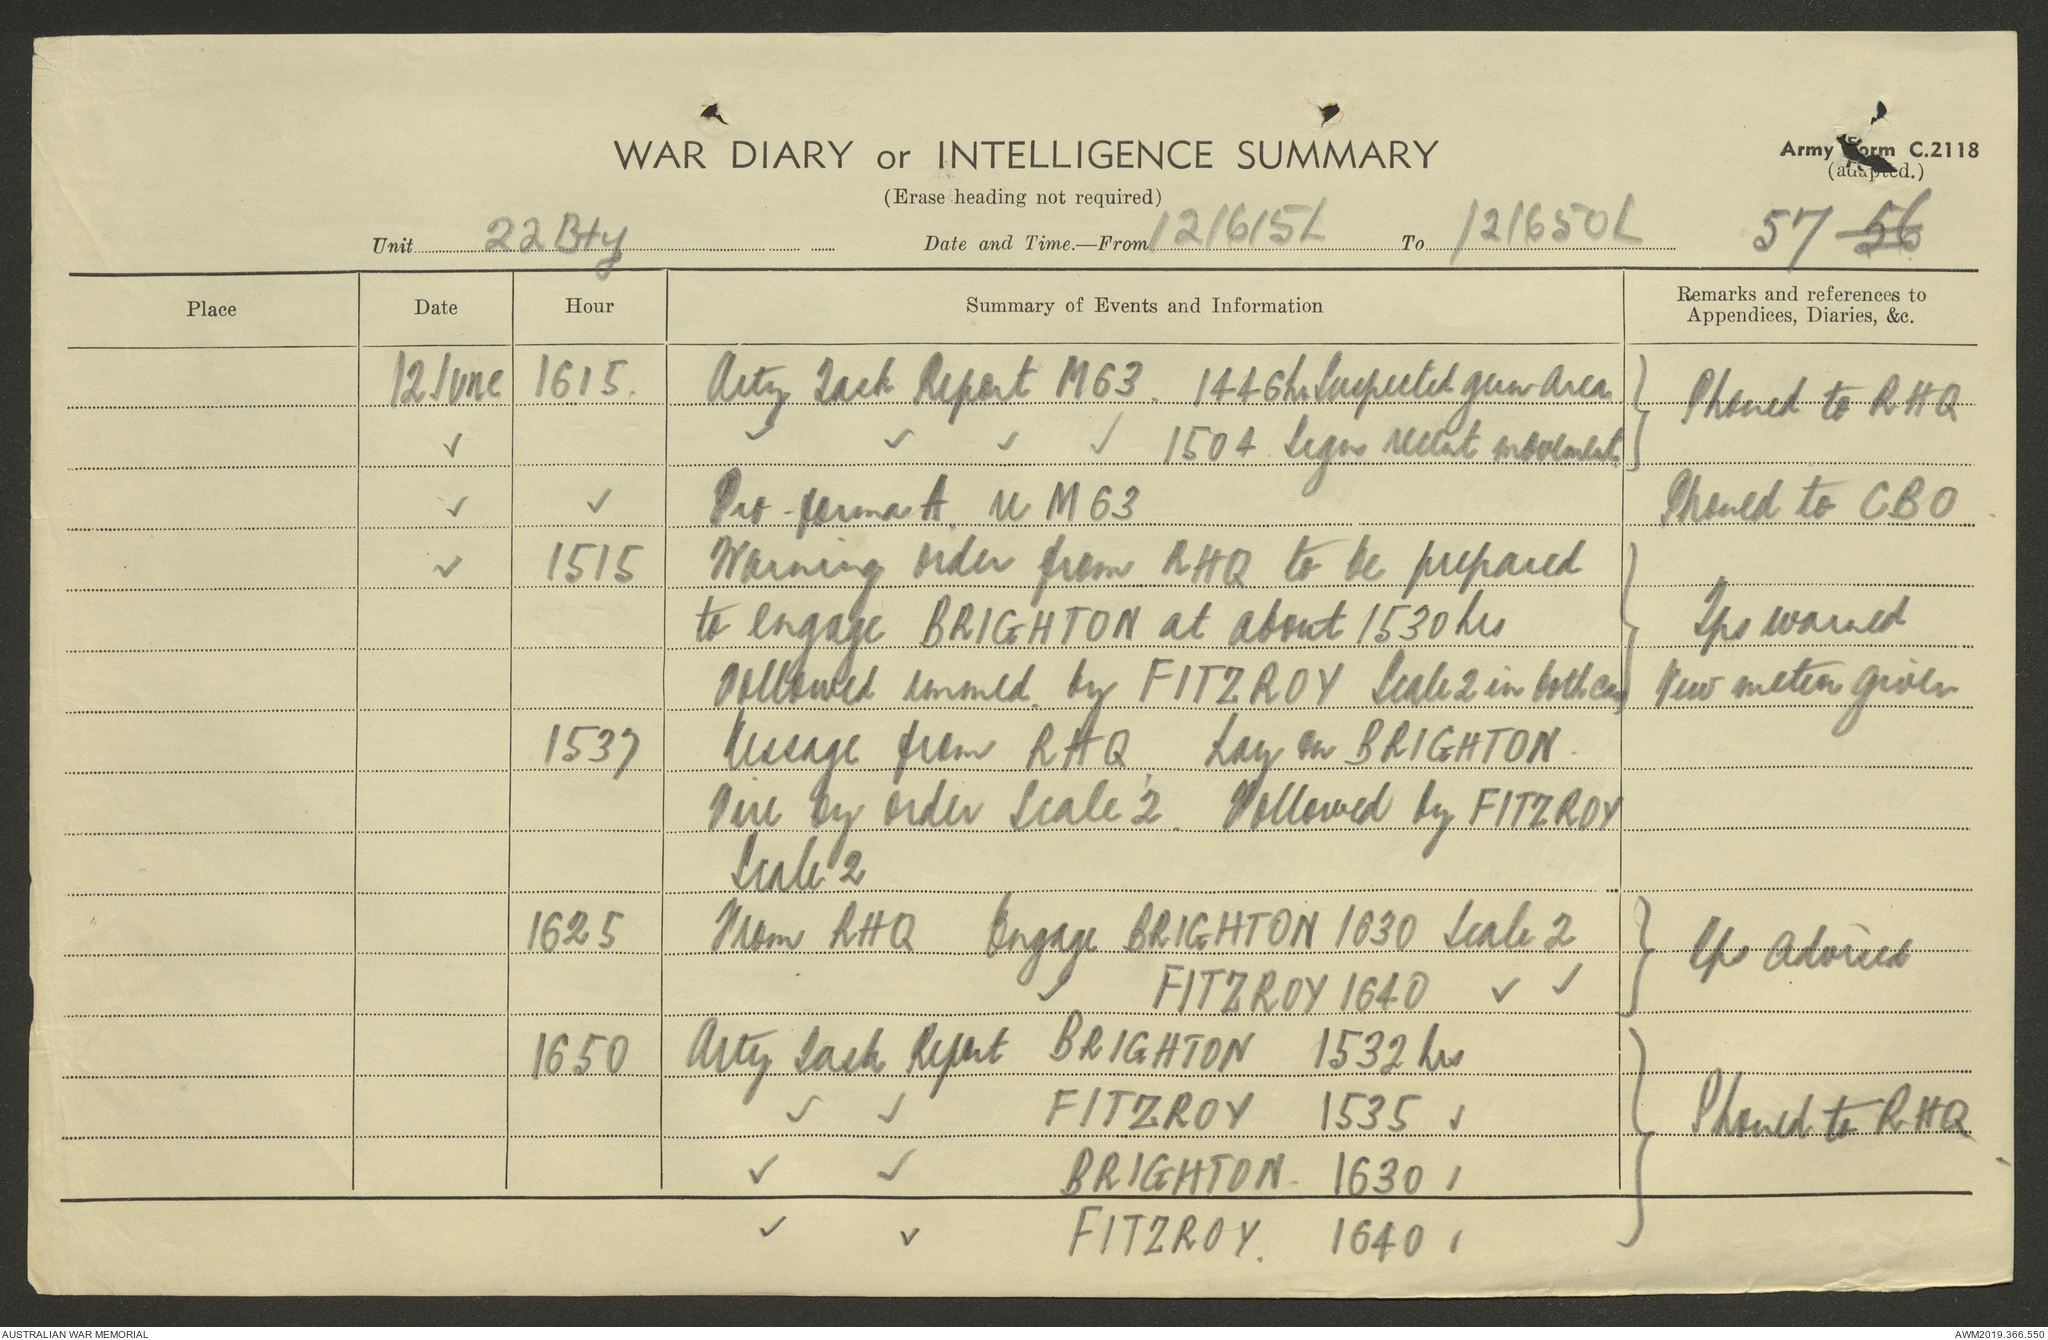 WAR DIARY or INTELLIGENCE SUMMARY
Army Form C.2118
(Erase heading not required)
(adapted.)
Unit 22 Bty Date and Time.—From 121615L To 121650L 57 56
Place Date Hour Summary of Events and Information Remarks and references to Appendices, Diaries, &c.
12 June 1615. Arty Task Report M63. 1446 hrs Suspected gun area Phoned to RHQ
✓ ✓ ✓ ✓ ✓ 1504 Signs recent movement.
✓ ✓ Pro-forma A re M63 Phoned to CBO
✓ 1515 Warning order from RHQ to be prepared
to engage BRIGHTON at about 1530 hrs Tps warned
Followed immed. by FITZROY Scale 2 in both cases New meteor given
1537 Message from RHQ Lay on BRIGHTON.
Fire by order Scale 2. Followed by FITZROY
Scale 2
1625 From RHQ Engage BRIGHTON 1630 Scale 2 Tps advised
✓ FITZROY 1640 ✓ ✓
1650 Arty Task Report BRIGHTON 1532 hrs
✓ ✓ FITZROY 1535 ✓ Phoned to RHQ
✓ ✓ BRIGHTON. 1630 ✓
✓ ✓ FITZROY. 1640 ✓
AUSTRALIAN WAR MEMORIAL
AWM2019.366.550